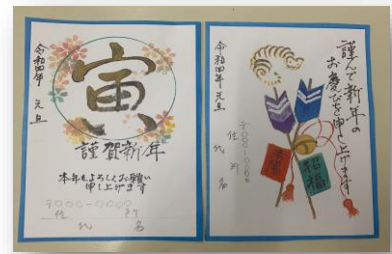 令和四年 元旦
寅
謹賀新年
本年もよろしくお願い
申し上げます
〒000-0000
住 所
氏 名
謹んで新年の
お慶びを申し上げます
令和四年 元旦
〒000-0000
住 所
氏 名
招福